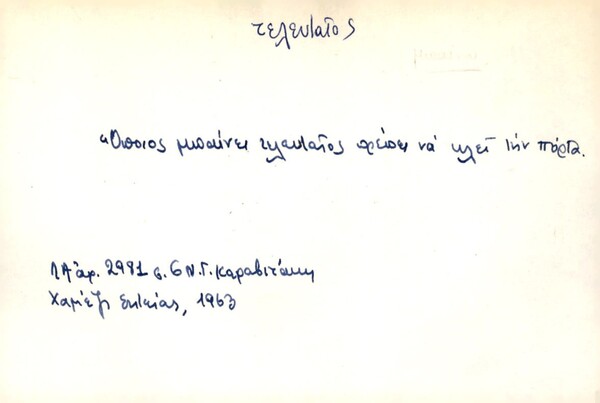 τελευταῖος
«Ὅποιος μπαίνει τελευταῖος πρέπει νά κλεῖ τήν πόρτα.
ΛΑ ἀρ. 2981 σ. 6 Ν.Γ. Καραβιτάκη
Χαμέζι Σητείας, 1963